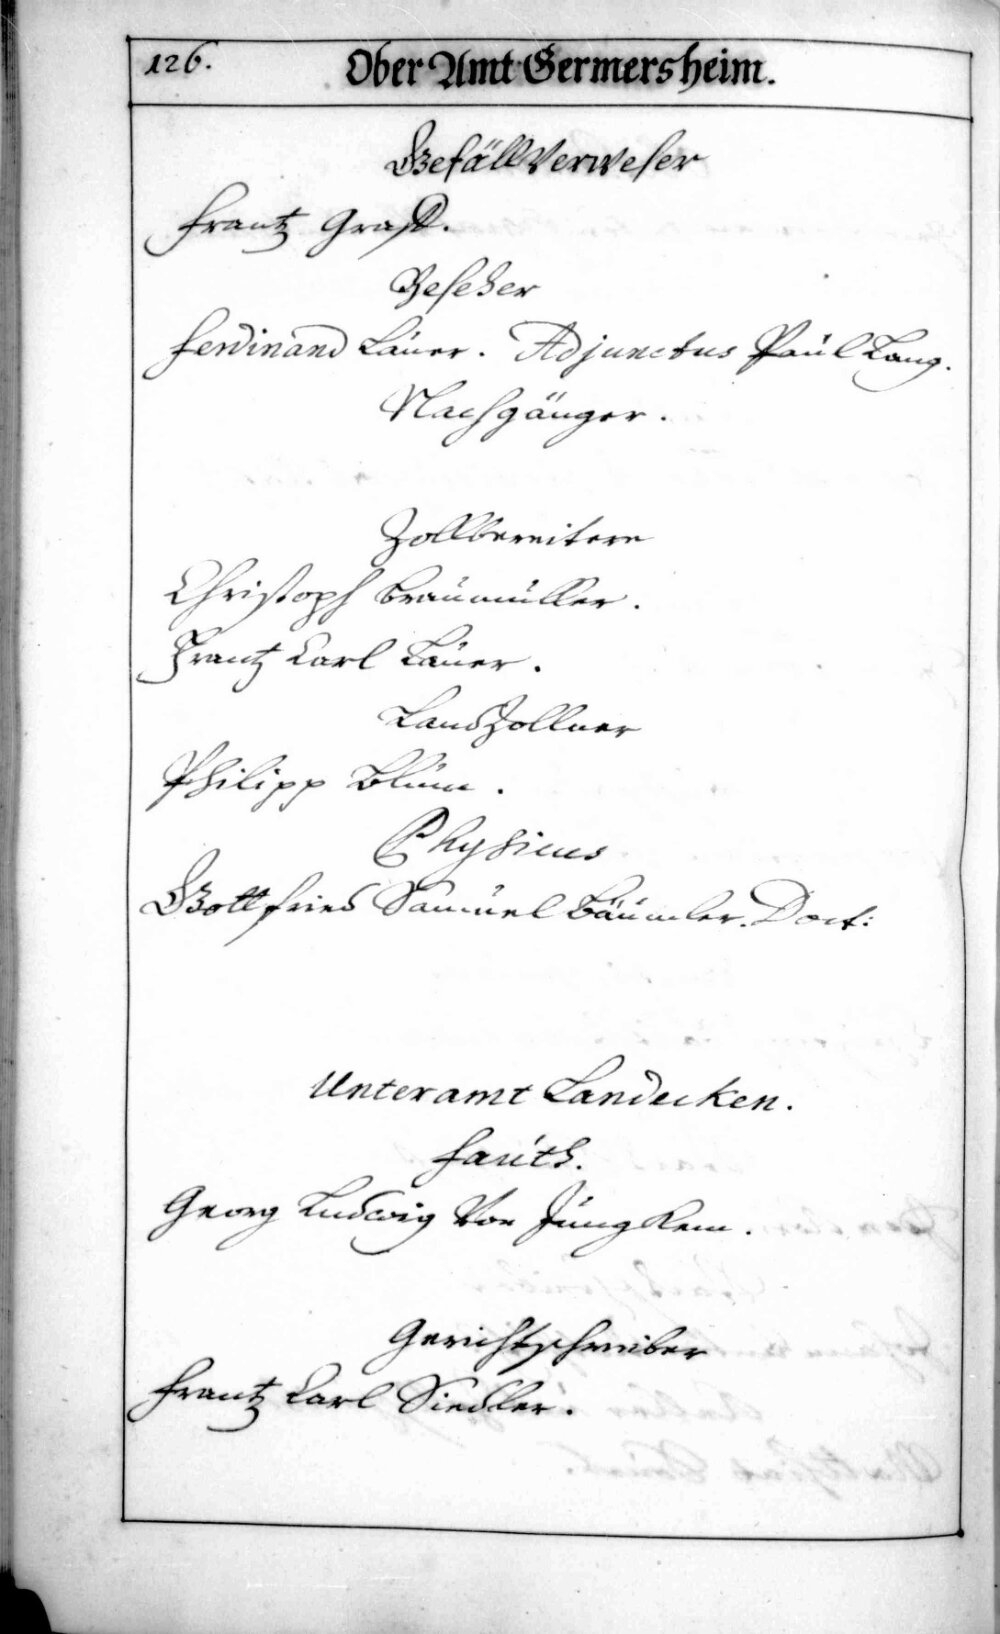 126.
Ober Amt Germersheim.
GefällVerweser
Frantz Graff.
Beseher
Ferdinand Läuer. Adjunctus Paul Lang.
Nachgänger.
Zollbereitere
Christoph Braumüller.
Frantz Carl Läuer.
LandZollner
Philipp Blum.
Physicus
Gottfried Samuel Bäumler. Doct:
Unteramt Landecken.
Fauth.
Georg Ludwig Von Jungkem.
Gerichtschreiber
Frantz Carl Siedler.